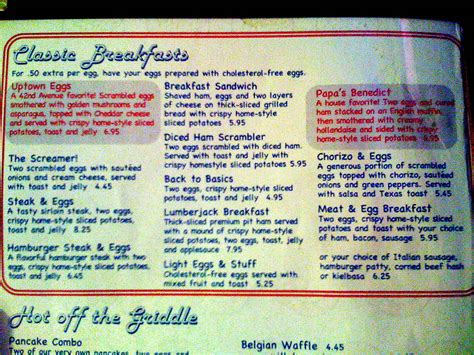 Classic Breakfasts
For .50 extra per egg, have your eggs prepared with cholesterol-free eggs.
Uptown Eggs
A 42nd Avenue favorite! Scrambled eggs
smothered with golden mushrooms and
asparagus, topped with Cheddar cheese
and served with crispy home-style sliced
potatoes, toast and jelly 6.95
The Screamer!
Two scrambled eggs with sautéed
onions and cream cheese, served
with toast and jelly 4.45
Steak & Eggs
A tasty sirloin steak, two eggs,
crispy home-style sliced potatoes,
toast and jelly 8.25
Hamburger Steak & Eggs
A flavorful hamburger steak with two
eggs, crispy home-style sliced potatoes,
toast and jelly 6.25
Breakfast Sandwich
Shaved ham, eggs and two layers
of cheese on thick-sliced grilled
bread with crispy home-style
sliced potatoes 5.95
Diced Ham Scrambler
Two scrambled eggs with diced
ham, toast and jelly with crispy
homestyle sliced potatoes 5.95
Back to Basics
Two eggs, crispy home-style sliced
potatoes, toast and jelly 4.45
Lumberjack Breakfast
Thick-sliced premium pit ham served
with a mound of crispy home-style sliced
potatoes, two eggs, toast, jelly and
applesauce 7.95
Light Eggs & Stuff
Cholesterol-free eggs served with
mixed fruit and toast 5.25
Papa's Benedict
A house favorite! Two eggs and cured
ham stacked on an English muffin,
then smothered with creamy
hollandaise and sided with crispy
home-style sliced potatoes 6.95
Chorizo & Eggs
A generous portion of scrambled
eggs topped with chorizo, sautéed
onions and green peppers. Served
with salsa and Texas toast 5.95
Meat & Egg Breakfast
Two eggs, crispy home-style sliced
potatoes and toast with your choice
of ham, bacon, sausage 5.95
or your choice of Italian sausage,
hamburger patty, corned beef hash
or kielbasa 6.25
Hot off the Griddle
Pancake Combo
Two of our very own pancakes, two eggs
Belgian Waffle 4.45